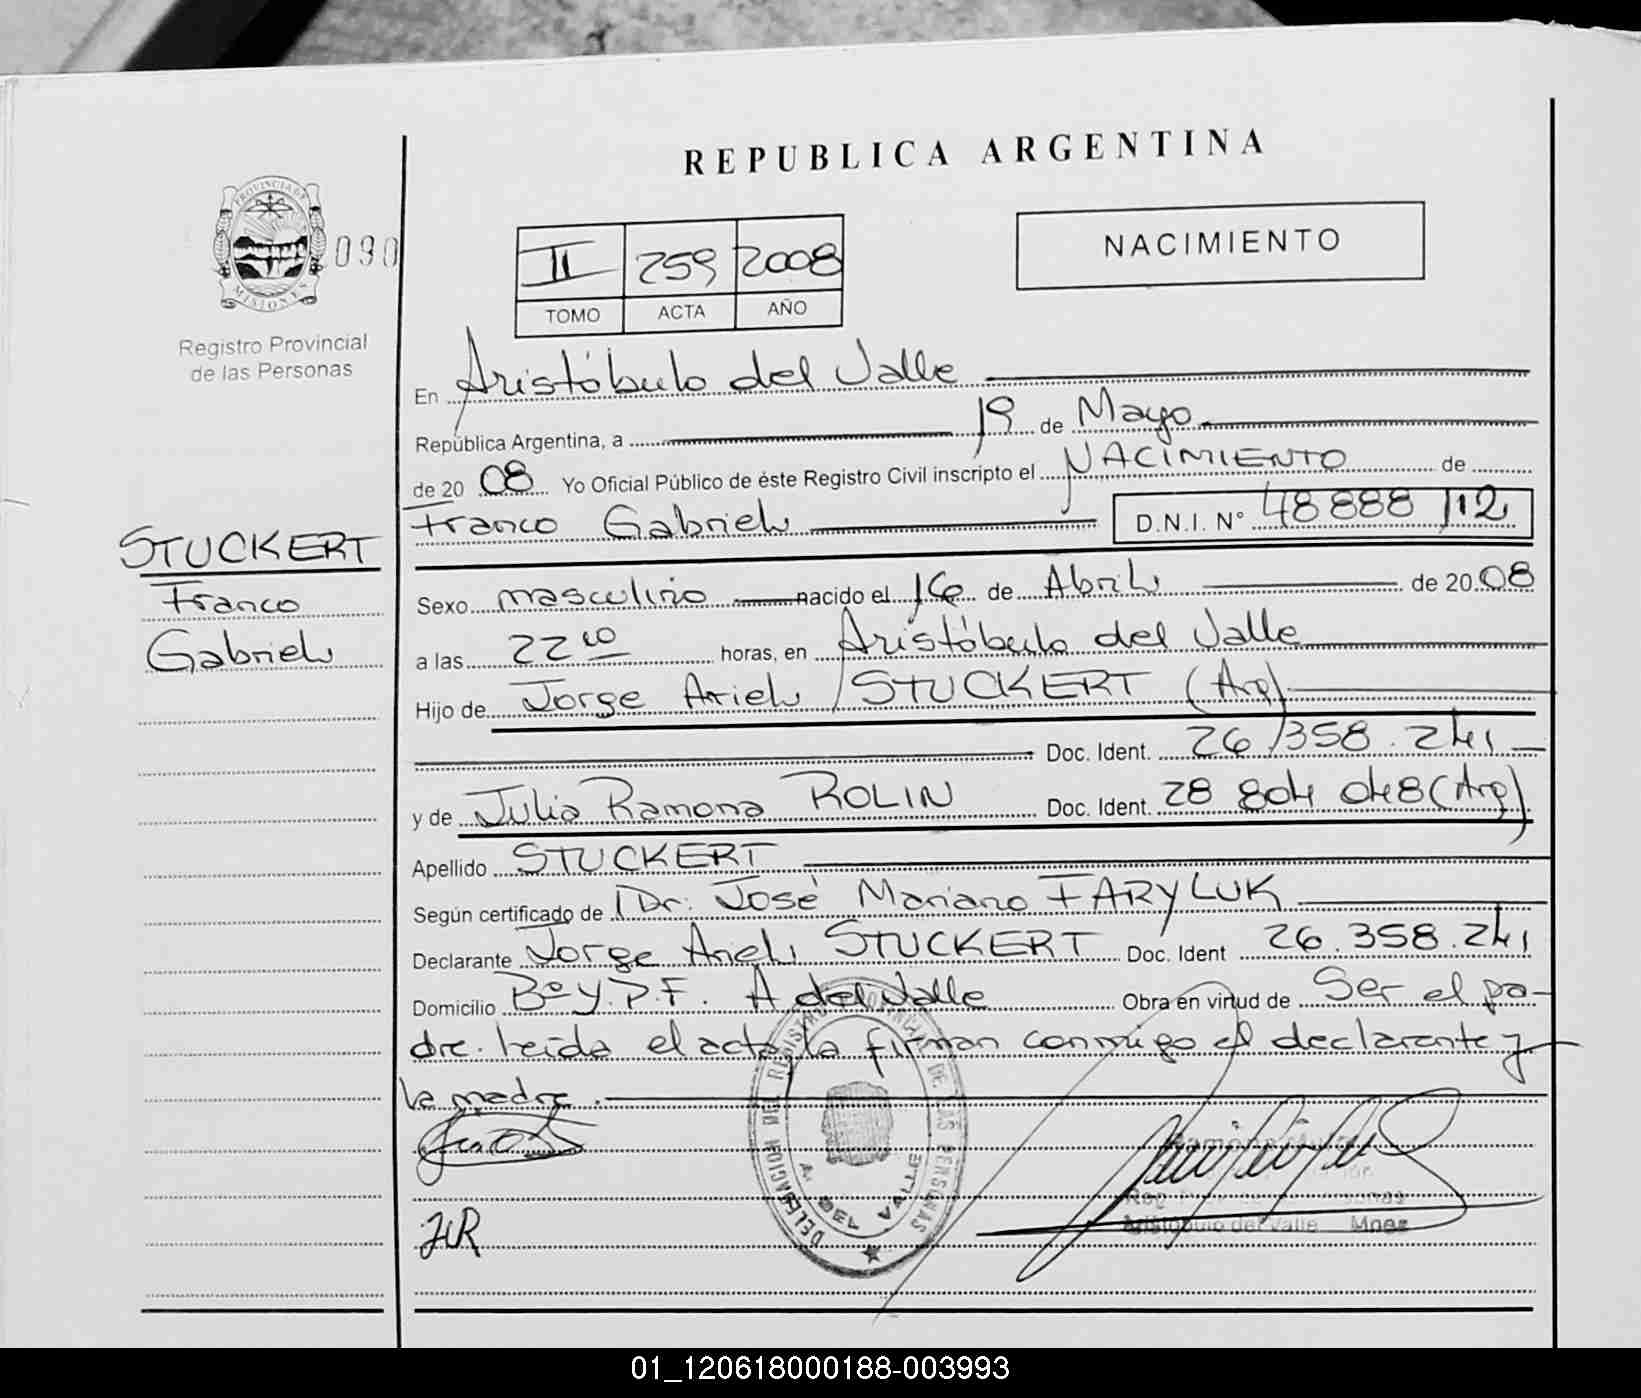 REPUBLICA ARGENTINA
PROVINCIA DE
MISIONES
090
Registro Provincial
de las Personas
II 259 2008
TOMO ACTA AÑO
NACIMIENTO
En Aristóbulo del Valle
República Argentina, a 19 de Mayo
de 20 08 Yo Oficial Público de éste Registro Civil inscripto el NACIMIENTO de
Franco Gabriel D.N.I. N° 48 888 112
STUCKERT
Franco
Gabriel
Sexo masculino nacido el 16 de Abril de 20 08
a las 22 10 horas, en Aristóbulo del Valle
Hijo de Jorge Ariel STUCKERT (Arg)
Doc. Ident. 26.358.241
y de Julia Ramona ROLIN Doc. Ident. 28 804 048 (Arg)
Apellido STUCKERT
Según certificado de Dr. José Mariano FARYLUK
Declarante Jorge Ariel STUCKERT Doc. Ident 26.358.241
Domicilio Bº Y.P.F. A del Valle Obra en virtud de Ser el pa-
dre. leida el acta la firman conmigo el declarante y
la madre.
DELEGACION DEL REGISTRO PROVINCIAL DE LAS PERSONAS
A. DEL VALLE
Ramona
Aristobulo del Valle Mnes
JR
01_120618000188-003993